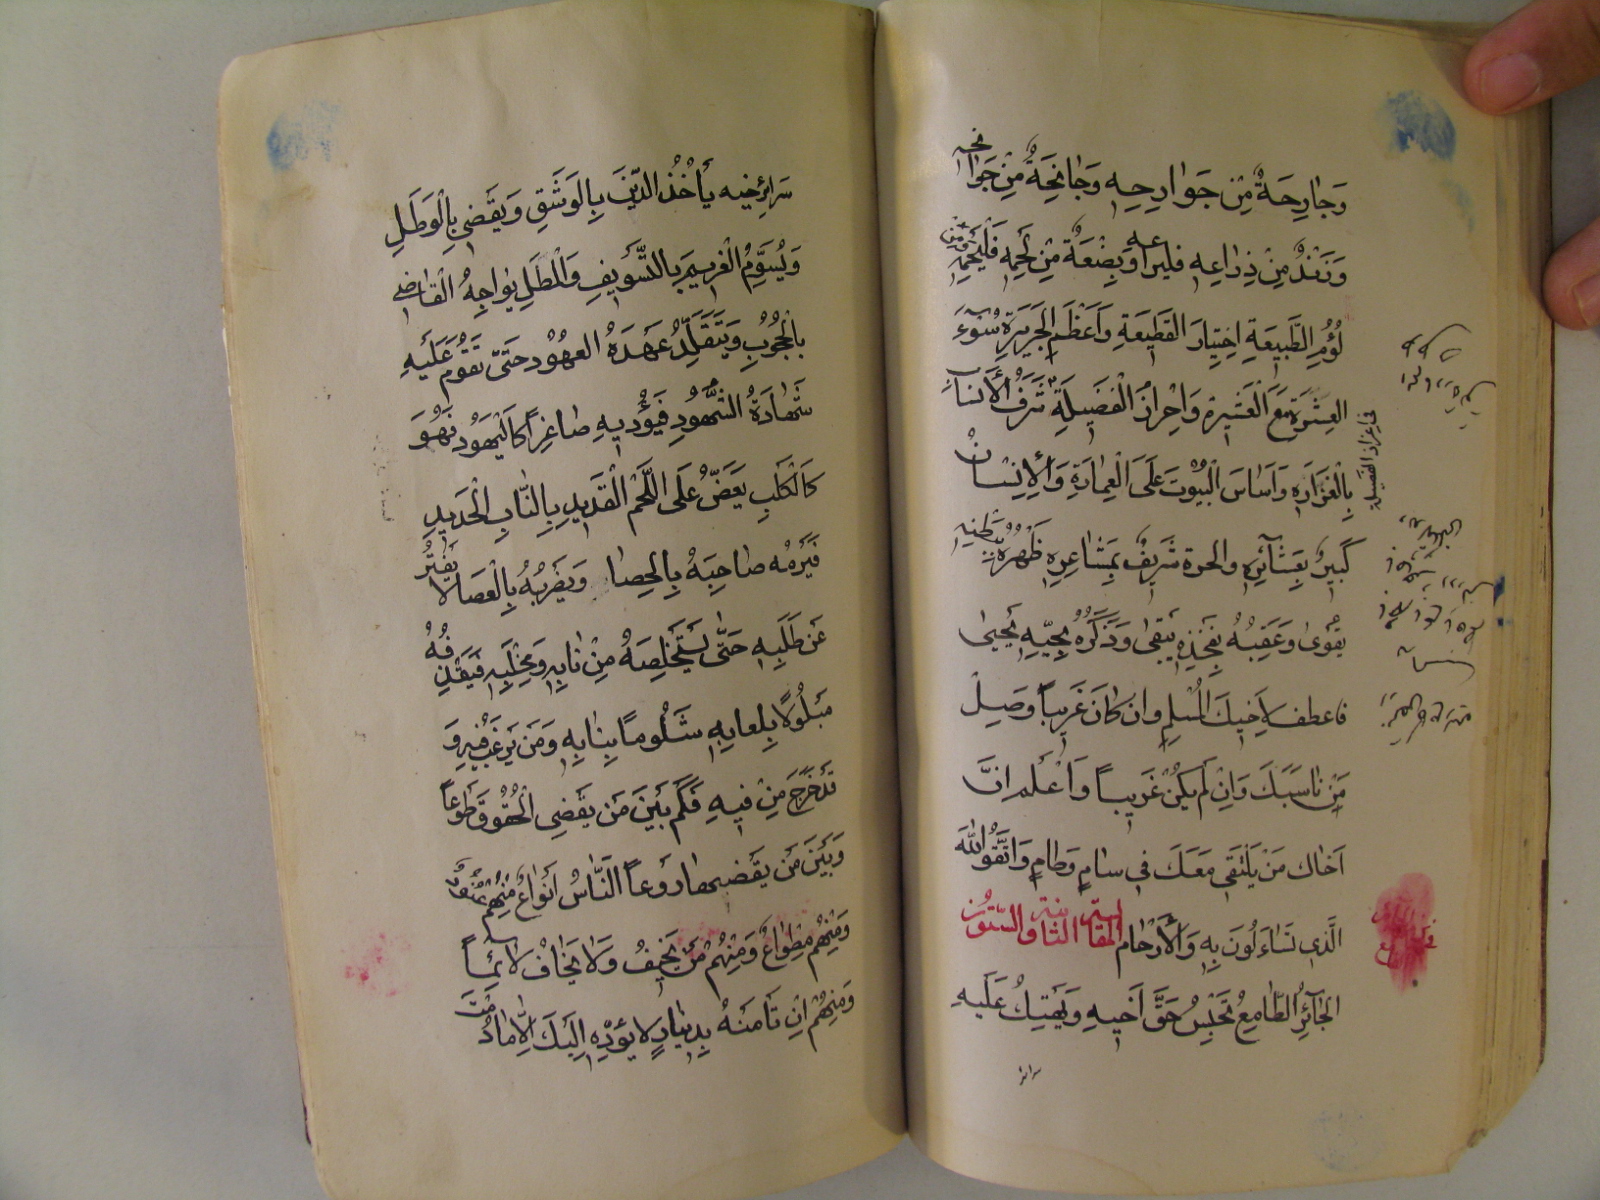 وَجَارِحَةٌ مِنْ جَوَارِحِهِ وَجَانِحَةٌ مِنْ جَوَانحه
وَزَنْدٌ مِنْ ذِرَاعِهِ فليراعه وَبِضْعَةٌ مِنْ لَحْمِهِ فَلْيَحْمِهِ
لُؤْمُ الطَّبِيعَةِ اِخْتِيَارَ القَطِيعَةِ وَاَعْظَمُ الْجَرِيرَةِ سُوءُ
العِشْرَةِ مَعَ الْعَشِيرَةِ وَاِحْرازُ الْفَضِيلَةِ شَرَفُ الْأَنْسَابِ
بِالْغَزَارَةِ وَاَسَاسَ الْبُيُوتِ عَلَى الْعِمَارَةِ وَالْإِنْسَانُ
كَبِيرٌ بِعَشَائِرِهِ والحرة شَرِيفٌ بِمَشَاعِرِهِ ظَهْرُهُ بِبَطْنِهِ
يَقْوَىٰ وَعَقِبُهُ بِفَخِذِهِ يَبْقَىٰ وَذِكْرُهُ بِحَيِّهِ يَحْيَىٰ
فاعطف لاَخِيكَ الْمُسْلِمِ وان كَانَ غَرِيباً وَصِلْ
مَنْ نَاسَبَكَ وَاِنْ لَمْ يَكُنْ غَرِيباً وَاعْلَم اِنَّ
اَخَاكَ مَنْ يَلْتَقِي مَعَكَ فِي سَامٍ وَحَامٍ وَاتَّقُوا اللّٰهَ
الَّذِي تَسَاءَلُونَ بِهِ وَالْأَرْحَامَ المقالة الثانية والستون
الْجَائِرُ الطَّامِعُ يَحْبِسُ حَقَّ اَخِيهِ وَيَهْتِكُ عَلَيْهِ
سرائر
سَرَائِرَ خيه يَأْخُذُ الدَّيْنَ بِالْوَشَقِ وَيَقْضِي بِالْوَطَلِ
وَيُسَوِّمُ الْغَرِيمَ بِالتَّسْوِيفِ وَالْمَطَلِ يُوَاجِهُ الْقَاضِي
بِالْحُجُوبِ وَيَتَقَلَّدُ عُهْدَةَ العهُودِ حَتَّى تَقُومَ عَلَيْهِ
شَهَادَةُ الشُّهُودِ فَيُؤَدِّيهِ صَاغِراً كَالْيَهُودِ فَهُوَ
كَالْكَلْبِ يَعَضُّ عَلَى اللَّحْمِ الْقَدِيدِ بِالنَّابِ الْحَدِيدِ
فَيَرْمُه صَاحِبَهُ بِالْحَصَا وَيَضْرِبُهُ بِالْعَصَا لا يَفْتُرُ
عَنْ طَلَبِهِ حَتَّى يَسْتَخْلِصَهُ مِنْ نَابِهِ وَمِخْلَبِهِ فَيَقْذِفُهُ
مَبْلُولاً بِلُعَابِهِ مَثْلُومًا بِنَابِهِ وَمَنْ يَرْغَبُ فِيهِ وَ
قَدْ خَرَجَ مِنْ فِيهِ فَكَمْ بَيْنَ مَنْ يَقْضِي الْحُقُوقَ طَوْعاً
وَبَيْنَ مَنْ يَقْضيها رَوْعاً النَّاسُ اَنْوَاعٌ مِنْهُمْ مَنُوعٌ
وَمِنْهُمْ مِطْوَاعٌ وَمِنْهُمْ مَنْ يَحِيفُ وَلَا يَخَافُ لَائِماً
وَمِنْهُمْ اِنْ تَأْمَنْهُ بِدِينَارٍ لا يُؤَدِّهِ اِلَيْكَ اِلَّا مَا دُمْتَ